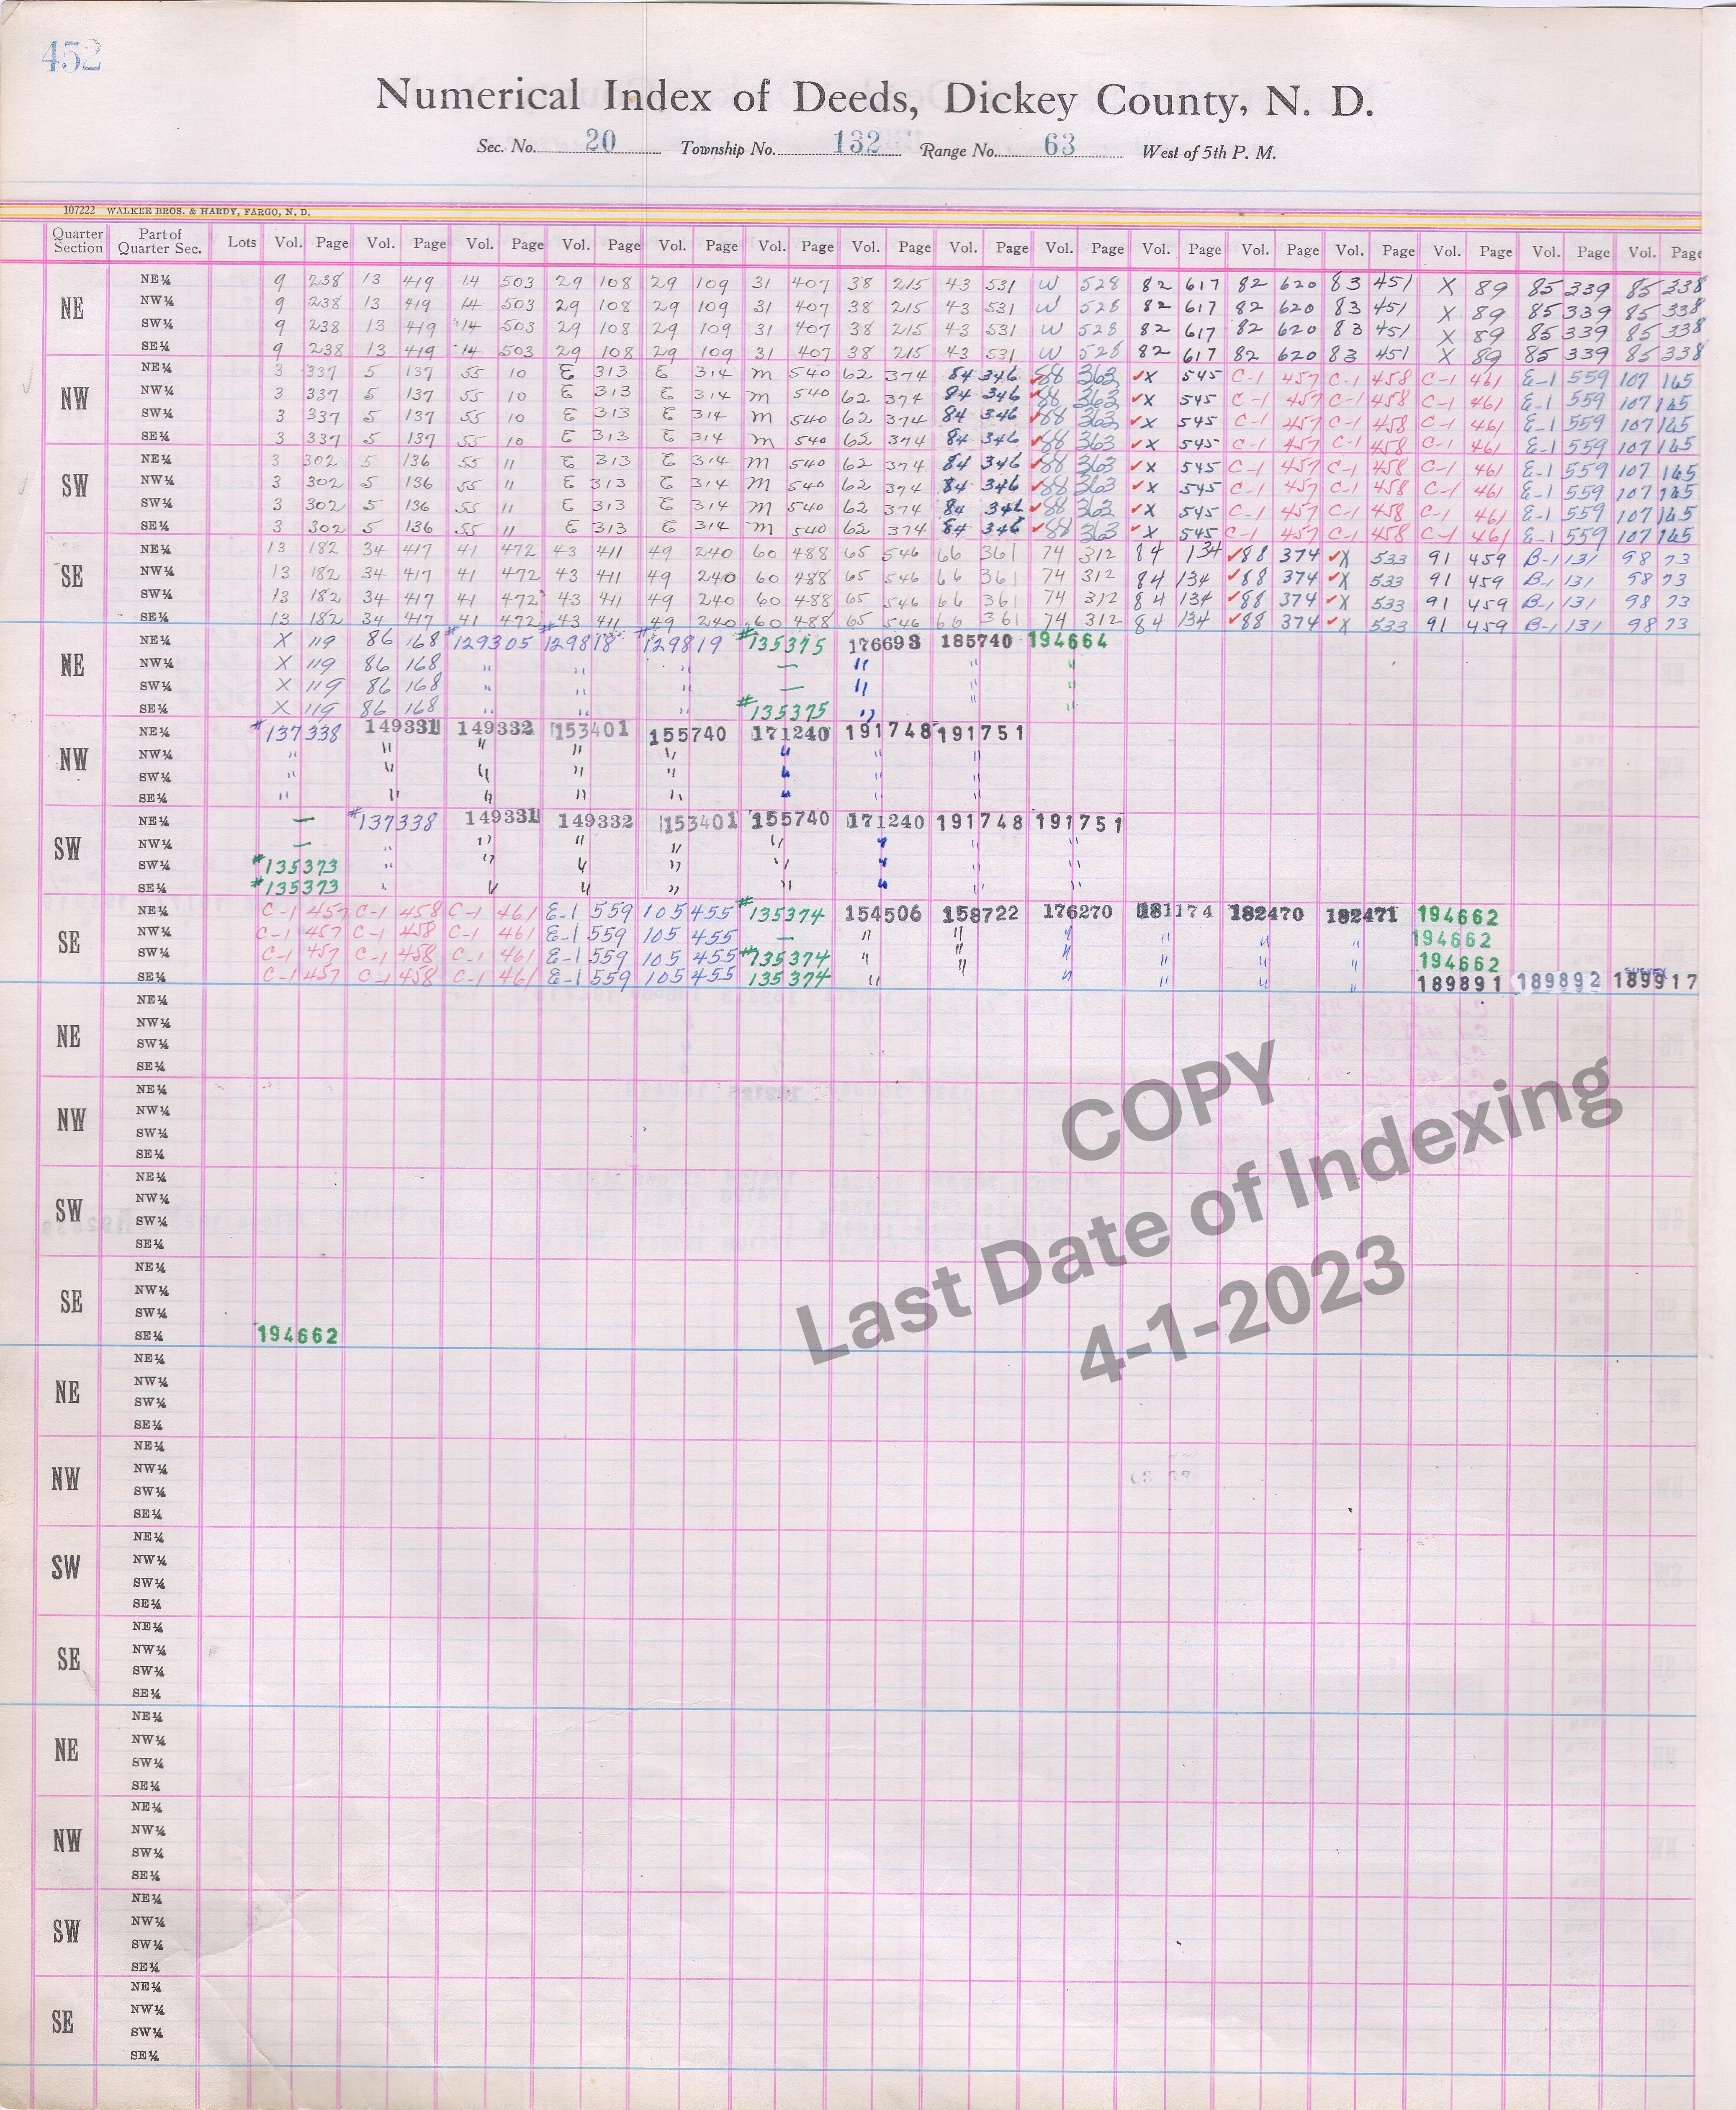 452
Numerical Index of Deeds, Dickey County, N. D.
Sec. No. 20 Township No. 132 Range No. 63 West of 5th P. M.
107222 WALKER BROS. & HARDY, FARGO, N. D.
Quarter Section Part of Quarter Sec. Lots Vol. Page Vol. Page Vol. Page Vol. Page Vol. Page Vol. Page Vol. Page Vol. Page Vol. Page Vol. Page Vol. Page Vol. Page Vol. Page Vol. Page Vol. Page
NE
NE¼ 9 238 13 419 14 503 29 108 29 109 31 407 38 215 43 531 W 528 82 617 82 620 83 451 X 89 85 339 85 338
NW¼ 9 238 13 419 14 503 29 108 29 109 31 407 38 215 43 531 W 528 82 617 82 620 83 451 X 89 85 339 85 338
SW¼ 9 238 13 419 14 503 29 108 29 109 31 407 38 215 43 531 W 528 82 617 82 620 83 451 X 89 85 339 85 338
SE¼ 9 238 13 419 14 503 29 108 29 109 31 407 38 215 43 531 W 528 82 617 82 620 83 451 X 89 85 339 85 338
NW
NE¼ 3 337 5 137 55 10 E 313 E 314 M 540 62 374 84 346 ✓88 363 ✓X 545 C-1 457 C-1 458 C-1 461 E-1 559 107 165
NW¼ 3 337 5 137 55 10 E 313 E 314 M 540 62 374 84 346 ✓88 363 ✓X 545 C-1 457 C-1 458 C-1 461 E-1 559 107 165
SW¼ 3 337 5 137 55 10 E 313 E 314 M 540 62 374 84 346 ✓88 363 ✓X 545 C-1 457 C-1 458 C-1 461 E-1 559 107 165
SE¼ 3 337 5 137 55 10 E 313 E 314 M 540 62 374 84 346 ✓88 363 ✓X 545 C-1 457 C-1 458 C-1 461 E-1 559 107 165
SW
NE¼ 3 302 5 136 55 11 E 313 E 314 M 540 62 374 84 346 ✓88 363 ✓X 545 C-1 457 C-1 458 C-1 461 E-1 559 107 165
NW¼ 3 302 5 136 55 11 E 313 E 314 M 540 62 374 84 346 ✓88 363 ✓X 545 C-1 457 C-1 458 C-1 461 E-1 559 107 165
SW¼ 3 302 5 136 55 11 E 313 E 314 M 540 62 374 84 346 ✓88 363 ✓X 545 C-1 457 C-1 458 C-1 461 E-1 559 107 165
SE¼ 3 302 5 136 55 11 E 313 E 314 M 540 62 374 84 346 ✓88 363 ✓X 545 C-1 457 C-1 458 C-1 461 E-1 559 107 165
SE
NE¼ 13 182 34 417 41 472 43 411 49 240 60 488 65 546 66 361 74 312 84 134 ✓88 374 ✓X 533 91 459 B-1 131 98 73
NW¼ 13 182 34 417 41 472 43 411 49 240 60 488 65 546 66 361 74 312 84 134 ✓88 374 ✓X 533 91 459 B-1 131 98 73
SW¼ 13 182 34 417 41 472 43 411 49 240 60 488 65 546 66 361 74 312 84 134 ✓88 374 ✓X 533 91 459 B-1 131 98 73
SE¼ 13 182 34 417 41 472 43 411 49 240 60 488 65 546 66 361 74 312 84 134 ✓88 374 ✓X 533 91 459 B-1 131 98 73
NE
NE¼ X 119 86 168 #129305 #129818 #129819 #135375 176693 185740 194664
NW¼ X 119 86 168 " " " — " " "
SW¼ X 119 86 168 " " " — " " "
SE¼ X 119 86 168 " " " #135375 " " "
NW
NE¼ #137338 149331 149332 153401 155740 171240 191748 191751
NW¼ " " " " " " " "
SW¼ " " " " " " " "
SE¼ " " " " " " " "
SW
NE¼ — #137338 149331 149332 153401 155740 171240 191748 191751
NW¼ — " " " " " " " "
SW¼ #135373 " " " " " " " "
SE¼ #135373 " " " " " " " "
SE
NE¼ C-1 457 C-1 458 C-1 461 E-1 559 105 455 #135374 154506 158722 176270 181174 182470 182471 194662
NW¼ C-1 457 C-1 458 C-1 461 E-1 559 105 455 — " " " " " " 194662
SW¼ C-1 457 C-1 458 C-1 461 E-1 559 105 455 #135374 " " " " " " 194662
SE¼ C-1 457 C-1 458 C-1 461 E-1 559 105 455 135374 " " " " " " 189891 189892 189917
NE
NE¼
NW¼
SW¼
SE¼
NW
NE¼
NW¼
SW¼
SE¼
SW
NE¼
NW¼
SW¼
SE¼
SE
NE¼
NW¼
SW¼
SE¼ 194662
NE
NE¼
NW¼
SW¼
SE¼
NW
NE¼
NW¼
SW¼
SE¼
SW
NE¼
NW¼
SW¼
SE¼
SE
NE¼
NW¼
SW¼
SE¼
NE
NE¼
NW¼
SW¼
SE¼
NW
NE¼
NW¼
SW¼
SE¼
SW
NE¼
NW¼
SW¼
SE¼
SE
NE¼
NW¼
SW¼
SE¼
COPY
Last Date of Indexing
4-1-2023